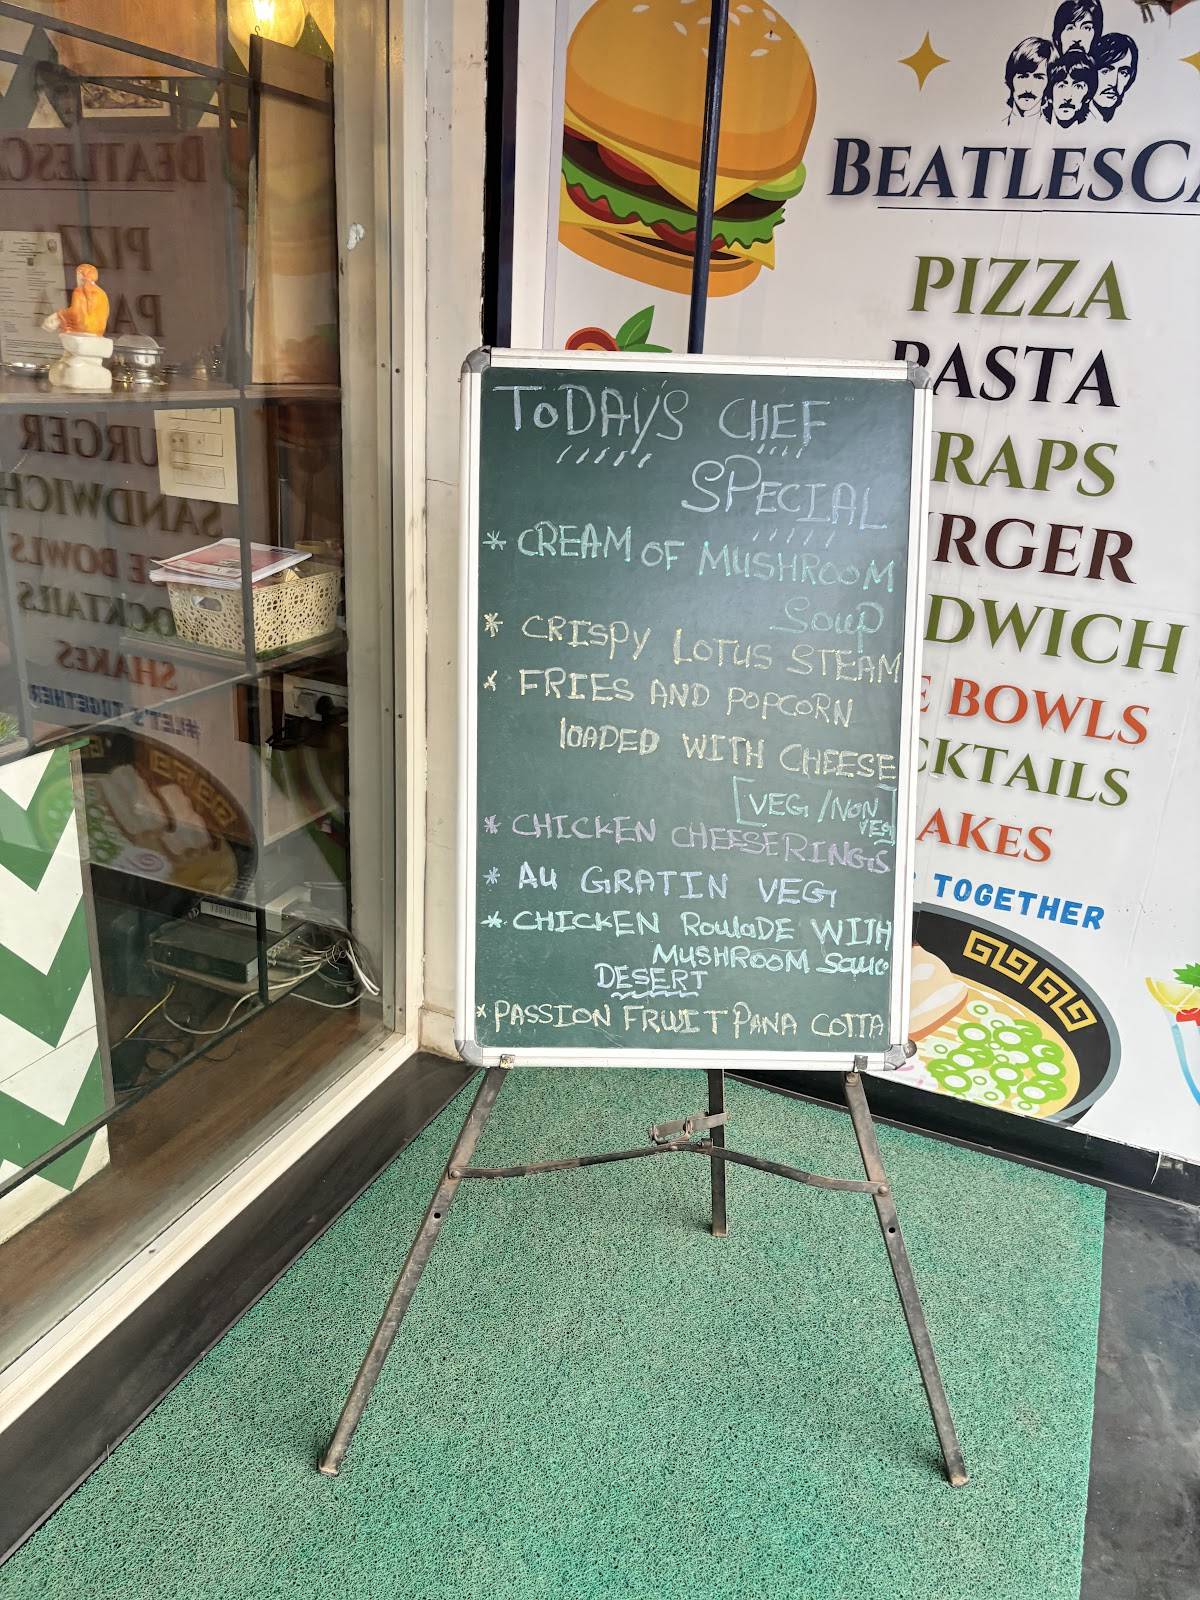 ToDAY'S CHEF
SPECIAL
* CREAM OF MUSHROOM
Soup
* CRISPY LOTUS STEAM
* FRIES AND POPCORN
lOADED WITH CHEESE
[VEG/NON
VEG]
* CHICKEN CHEESERINGS
* AU GRATIN VEG
* CHICKEN ROULADE WITH
MUSHROOM Sauce
DESERT
* PASSION FRUIT PANA COTTA
BEATLESCA
PIZZA
PASTA
RAPS
RGER
DWICH
E BOWLS
CKTAILS
AKES
TOGETHER
BEATLESC
PIZZ
PA
URGER
SANDWICH
E BOWLS
OCKTAILS
SHAKES
#LET'S TOGETHER